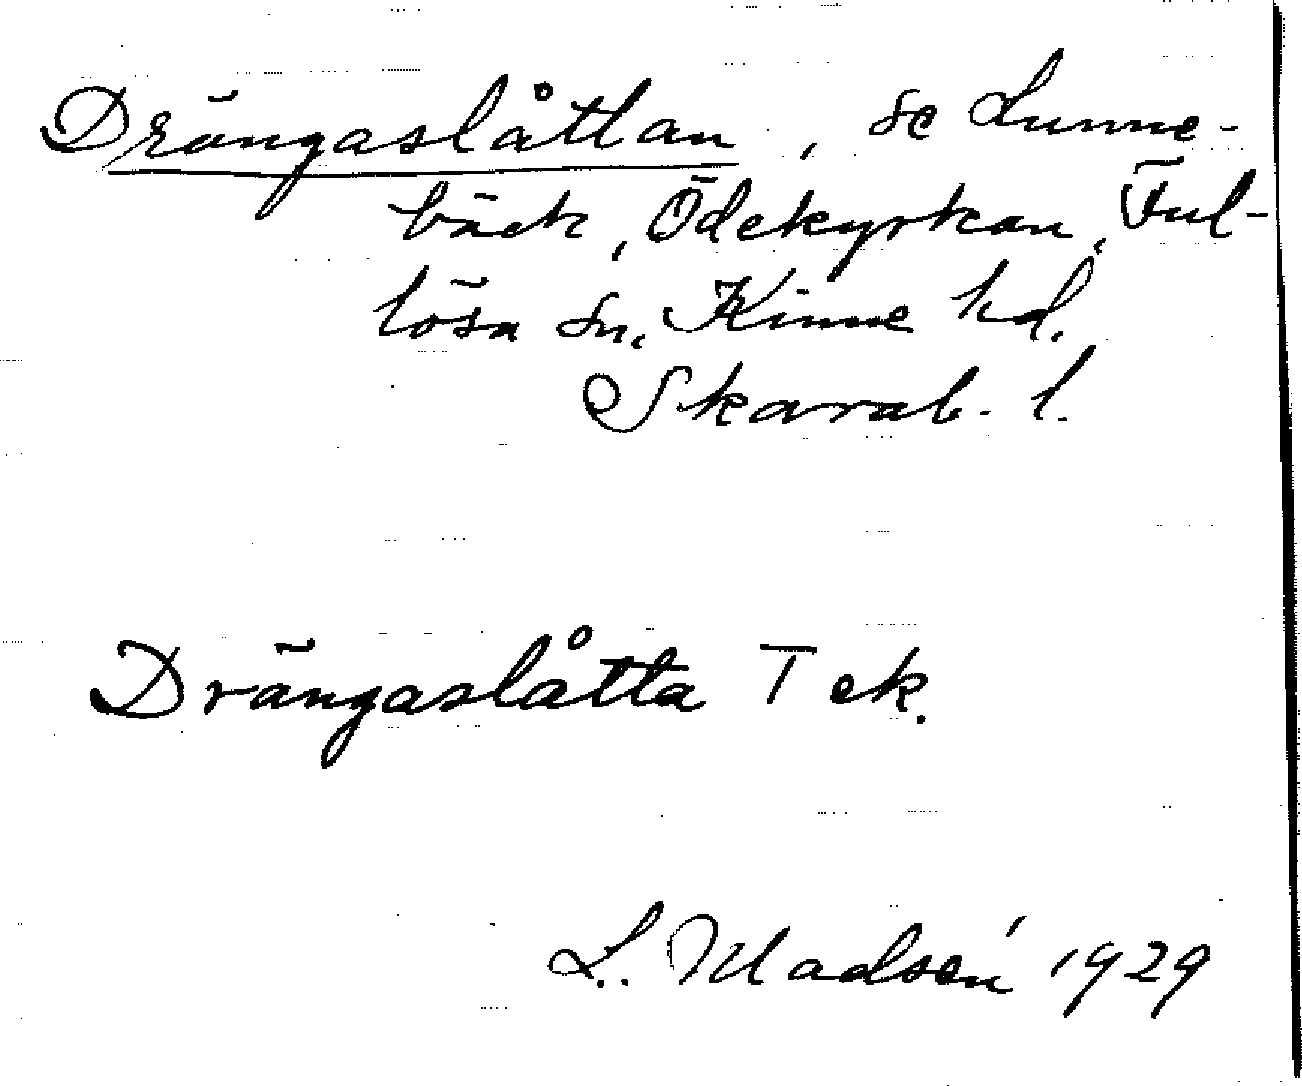 Drängaslåttan, se Lunne-
bäck, Ödekyrkan, Ful-
lösa sn. Kinne hd.
Skarab. l.
Drängaslåtta Tek.
L. Madsén 1929